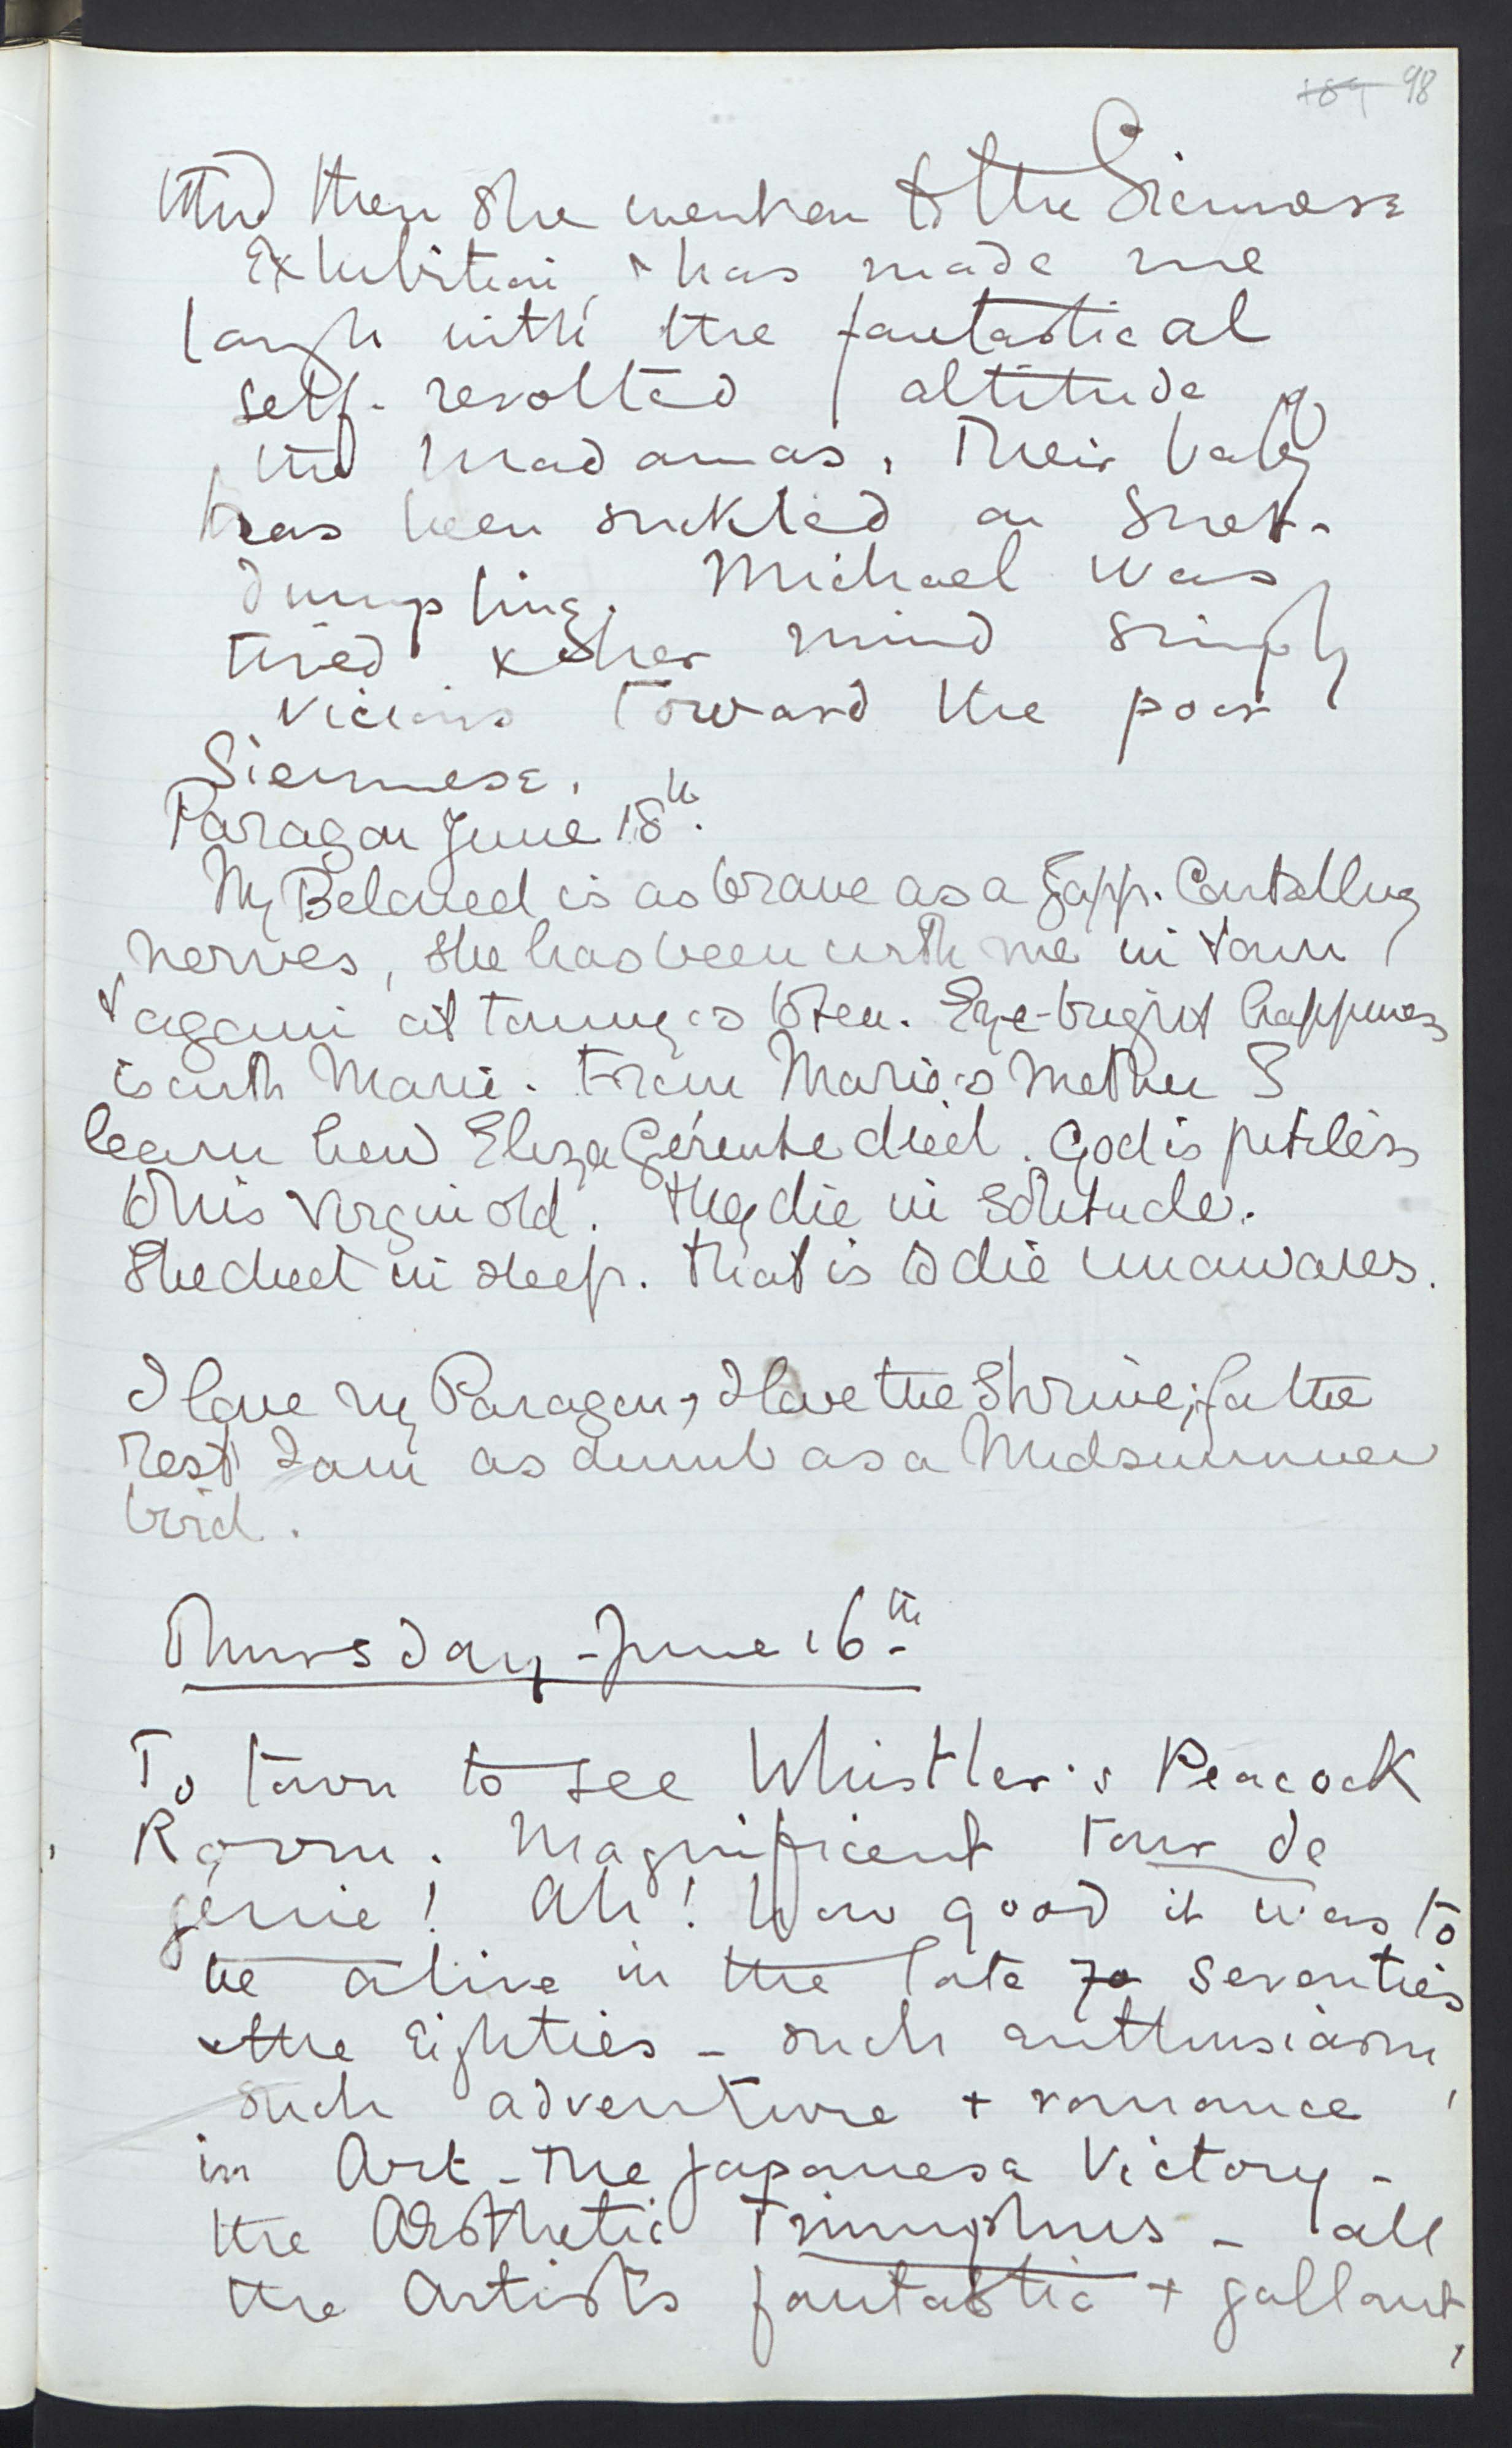 189 98
And then she went on to the Siennese
Exhibition, & has made me
laugh with the fantastical
self-revolted attitude of
the Madonnas. Their baby
has been suckled on suet-
dumpling. Michael was
tired & her mind simply
vicious toward the poor
Siennese.
Paragon June 18th.
My Beloved is as brave as a Japp. Controlling
nerves, she has been with me in town
& again at Tommy's to tea. Eye-bright happiness
is with Marie. From Marie's mother I
learn how Eliza Gérente died. God is pitiless
to His Virgin old. They die in solitude.
She died in sleep. That is to die unawares.
I love my Paragon, I love the Shrine; for the
rest I am as dumb as a Midsummer
bird.
Thursday - June 16th -
To town to see Whistler's Peacock
Room. Magnificent tour de
génie! Ah! How good it was to
be alive in the late 70 seventies
& the Eighties - such enthusiasm,
such adventure + romance
in Art - The Japanese Victory -
the Aesthetic Triumphus - all
the Artists fantastic + gallant,